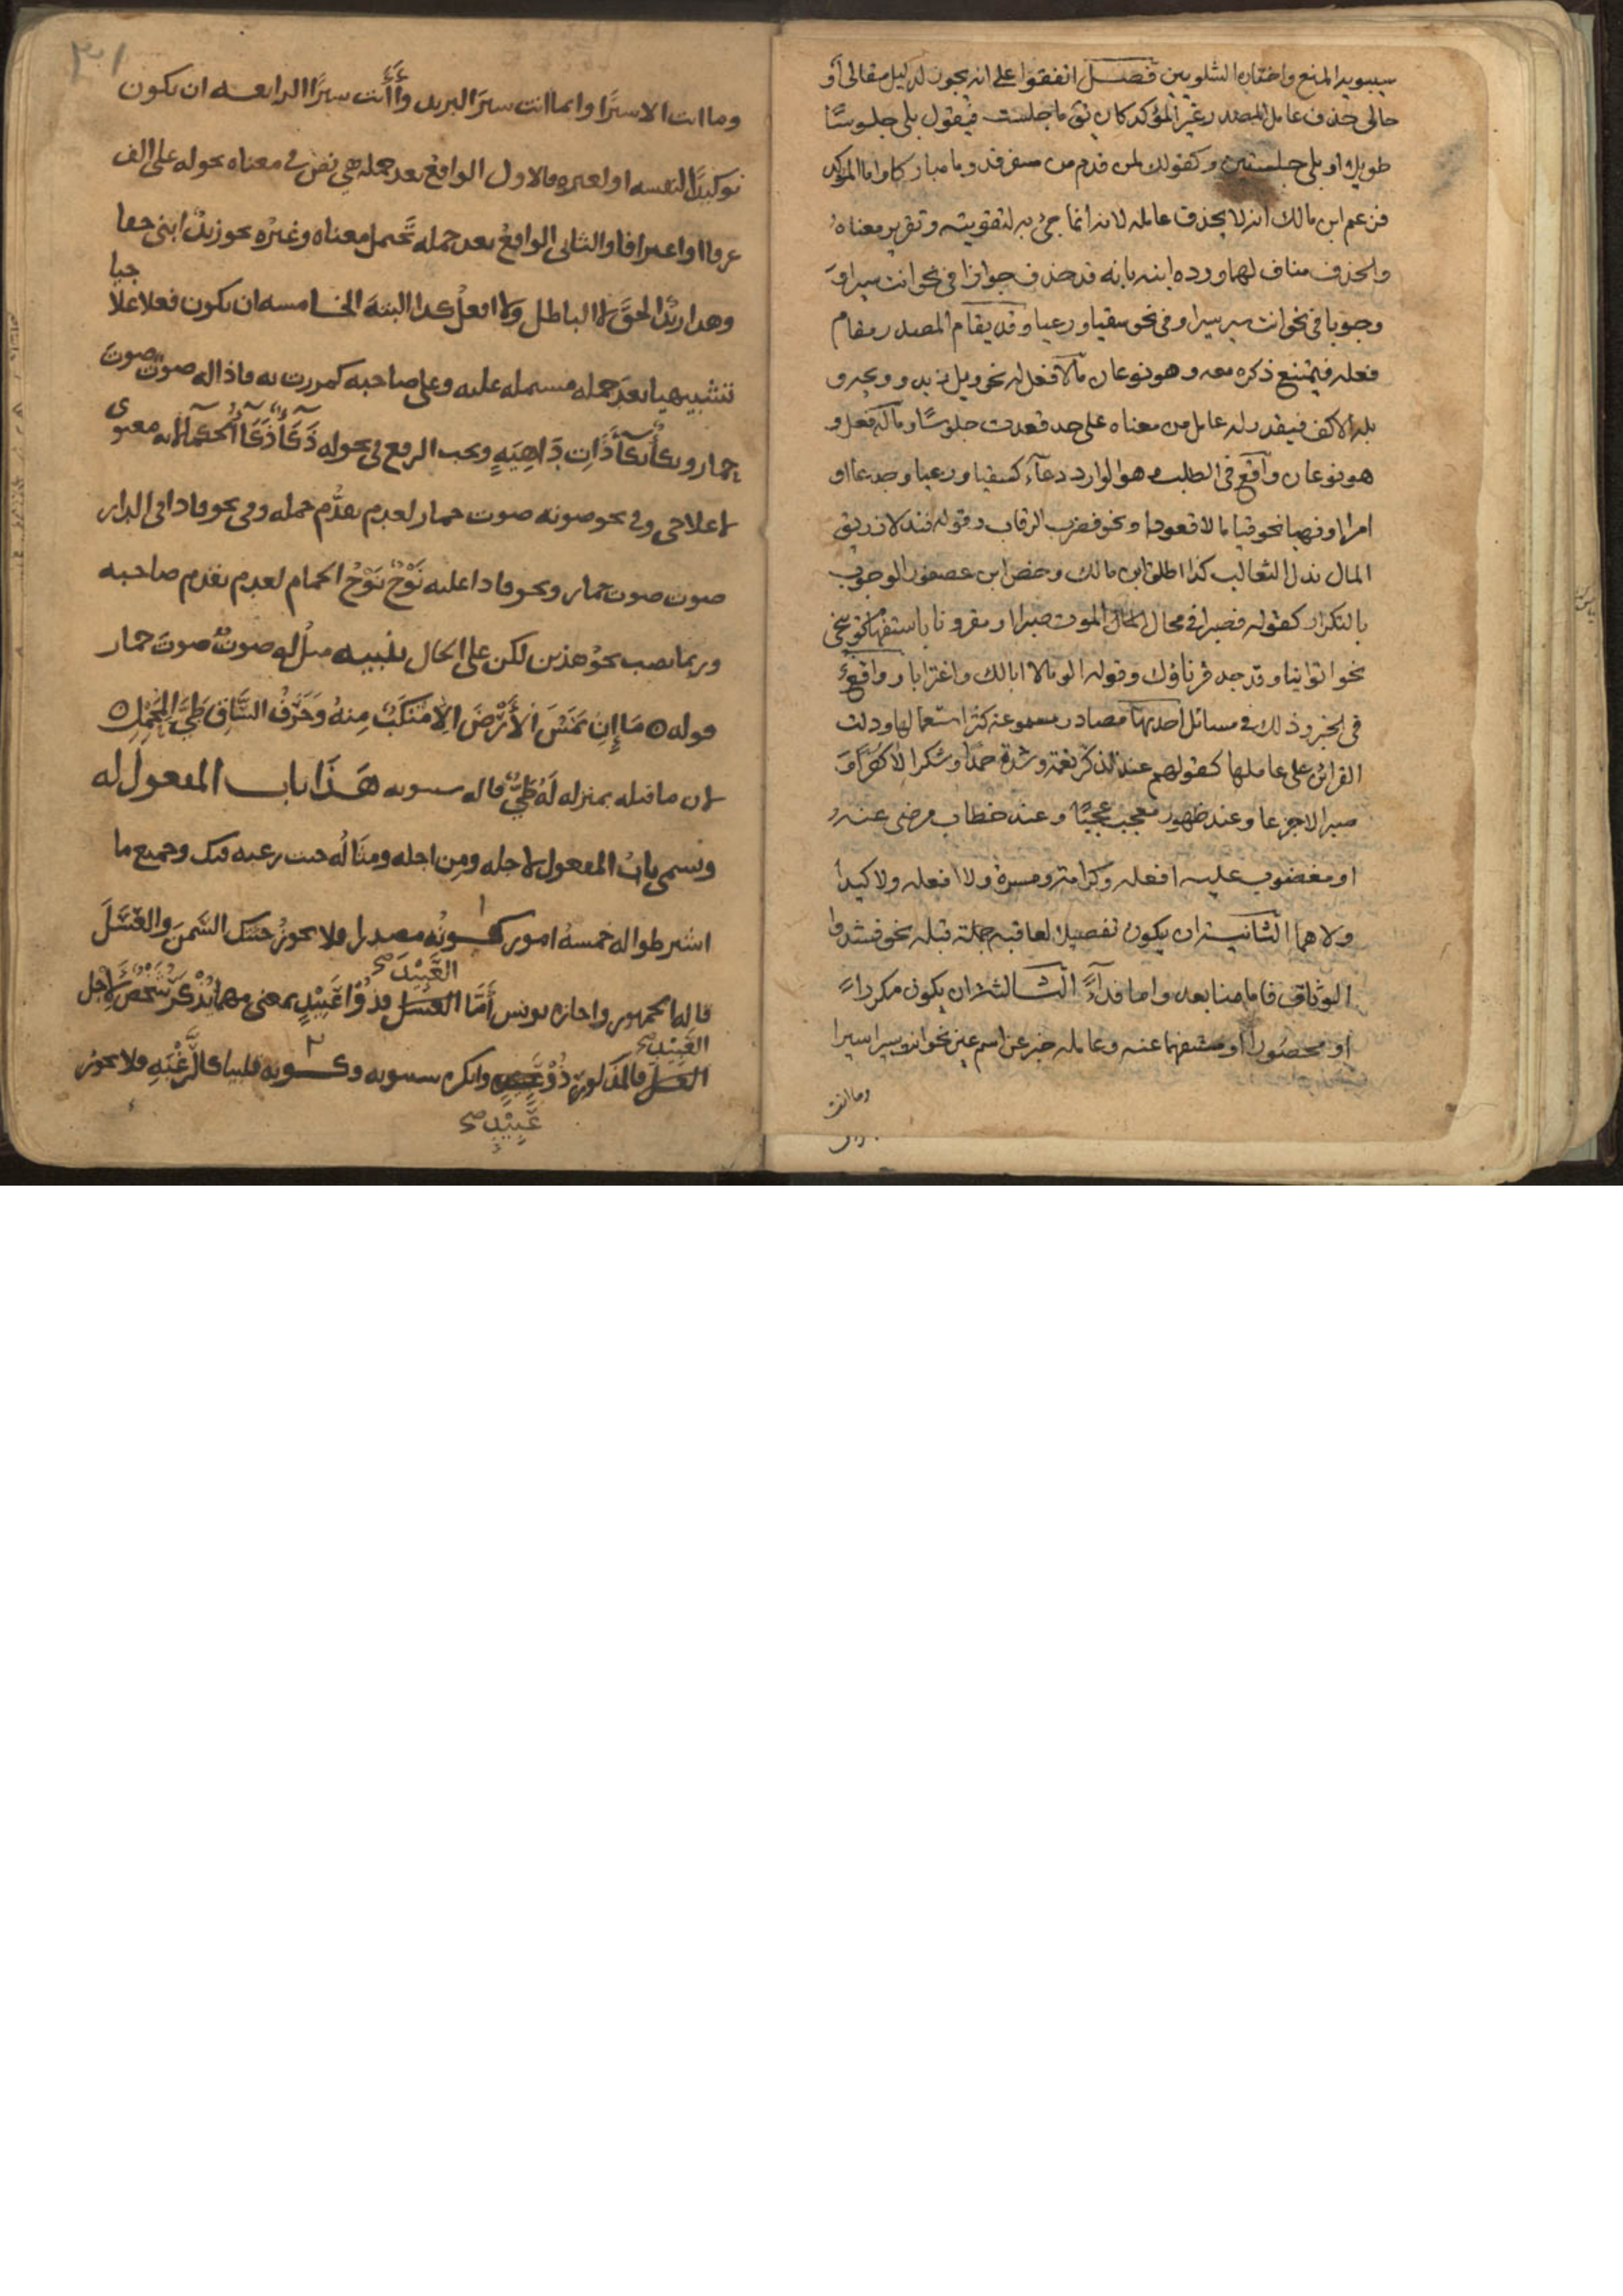 سيبويه المنع واختاره الشلوبين فصل اتفقوا على انه يجوز لدليل مقالي أو
حالي حذف عامل المصدر غير المؤكد كان يق ما جلست فيقول بلى جلوسًا
طويلا او بلى جلستين وكقولك لمن قدم من سفر قدوما مباركا واما المؤكد
فزعم ابن مالك انه لا يحذف عامله لانه انما جئ به لتقويته وتقرير معناه
والحذف مناف لهما ورده ابنه بانه قد حذف جوازا في نحو انت سيرا و
وجوبا في نحو انت سير سيرا وفي نحو سقيا ورعيا وقد يقام المصدر مقام
فعله فيمتنع ذكره معه وهو نوعان ما لا فعل له نحو ويل زيد وويحه و
بله الاكف فيقدر له عامل من معناه على حد قعدت جلوسًا وما له فعل و
هو نوعان واقع في الطلب وهو الوارد دعآء كسقيا ورعيا وجدعا او
امرا او نهيا نحو قياما لا قعودا ونحو فضرب الرقاب وقوله فندلا زريق
المال ندل الثعالب كذا اطلق ابن مالك وخص ابن عصفور الوجوب
بالتكرار كقوله فصبرا في مجال الموت صبرا او مقرونا باستفهام توبيخي
نحو اتوانيا وقد جد قرناؤك وقوله الوما لا ابالك واغترابا وواقع
في الخبر وذلك في مسائل احديها مصادر مسموعة كثر استعمالها ودلت
القرائن على عاملها كقولهم عند تذكر نعمة وشدة حمدا وشكرا لا كفرا و
صبرا لا جزعا وعند ظهور معجب عجبًا وعند خطاب مرضي عنه
او مغضوب عليه افعله وكرامة ومسرة ولا افعله ولا كيدا
ولا هما الثانية ان يكون تفصيلا لعاقبة جملة قبله نحو فشدوا
الوثاق فاما منا بعد واما فدآءً الثالثة ان يكون مكررا
او محصورا او مستفهما عنه وعامله خبر عن اسم عين نحو انت سيرا سيرا
وما انت
وما انت الا سيرًا وانما انت سيرَ البريد وأَأَنت سيرًا الرابعه ان يكون
توكيدًا لنفسه او لغيره فالاول الواقع بعد جمله هي نص في معناه نحو له علي الف
عرفا او اعترافا والثاني الواقعُ بعد جمله تحتمل معناه وغيرَه نحو زيدٌ ابني حقا
وهذا زيدٌ الحقَّ لا الباطل ولا افعلُ كذا البتةَ الخامسه ان يكون فعلا علاجيا
تشبيهيا بعدَ جمله مشتمله عليه وعلى صاحبه كمررت به فاذا له صوتٌ صوتَ
حمار وبكأٌ بكأَ ذَاتِ دَاهِيَهٍ ويجب الرفع في نحو له ذَكَأٌ ذَكَأُ الحكمآء لانه معنوى
لا علاجى وفي نحو صوته صوت حمار لعدم تقدُّم جمله وفي نحو فاذا في الدار
صوت صوت حمار ونحو فاذا عليه نَوْحٌ نَوْحُ الحمام لعدم تقدم صاحبه
وربما نصب نحوُ هذين لكن على الحال تنبيه مثلُ له صوتٌ صوتَ حمار
قوله ه مَا إِنِ يَمَسُّ الأَرْضَ الا مَنْكَبٌ مِنهُ وَحَرْفُ السَّاقِ طَيَّ المِحْمَلِ ه
لان ما قبله بمنزله لَهُ طَيٌّ قاله سيبويه هَذَا باب المفعول له
ويسمى بابَ المفعول لاجله ومِن اجله ومثالُه جيت رغبه فيك وجميع ما
اشترطوا له خمسهُ امور كونُه مصدرا فلا يجوزُ جيتك السَّمنَ والعَسَلَ
العَبِيْدَ صح
قاله الجمهور واجازه يونس أَمَّا العسل فذُوْا عَبِيْدٍ بمعنى مهما يُذْكَرْ شَخْصٌ لاجل
العَبِيْدِ صح
العسل فالمذكورُ ذُوْ وانكره سيبويه وكونه قلبيا كالرَّغْبَهِ فلا يجوز
عَبِيْدٍ صح